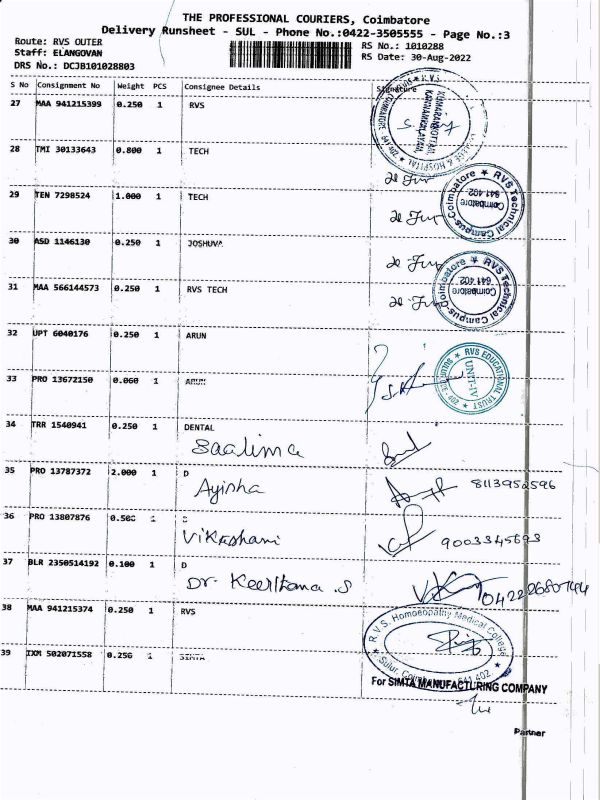 THE PROFESSIONAL COURIERS, Coimbatore
Delivery Runsheet - SUL - Phone No.:0422-3505555 - Page No.:3
Route: RVS OUTER
Staff: ELANGOVAN
DRS No.: DCJB101028803
RS No.: 1010288
RS Date: 30-Aug-2022
S No Consignment No Weight PCS Consignee Details Signature
27 MAA 941215399 0.250 1 RVS
28 TMI 30133643 0.800 1 TECH
29 TEN 7298524 1.000 1 TECH
RVS Technical Campus-Coimbatore
Coimbatore
641 402
30 ASD 1146130 0.250 1 JOSHUVA
31 MAA 566144573 0.250 1 RVS TECH
RVS Technical Campus-Coimbatore
Coimbatore
641 402
32 UPT 6040176 0.250 1 ARUN
33 PRO 13672150 0.060 1 ARUN
RVS EDUCATIONAL TRUST
UNIT-IV
34 TRR 1540941 0.250 1 DENTAL
Saalima
35 PRO 13787372 2.000 1 D
Ayisha 8113952596
36 PRO 13807876 0.500 1 D
Vikashani 9003345693
37 BLR 2350514192 0.100 1 D
Dr. Keerthana .S 04222680744
38 MAA 941215374 0.250 1 RVS
R.V.S. Homoeopathy Medical College
Sulur, Coimbatore 641 402
39 IXM 502071558 0.250 1 SIMTA
For SIMTA MANUFACTURING COMPANY
Partner